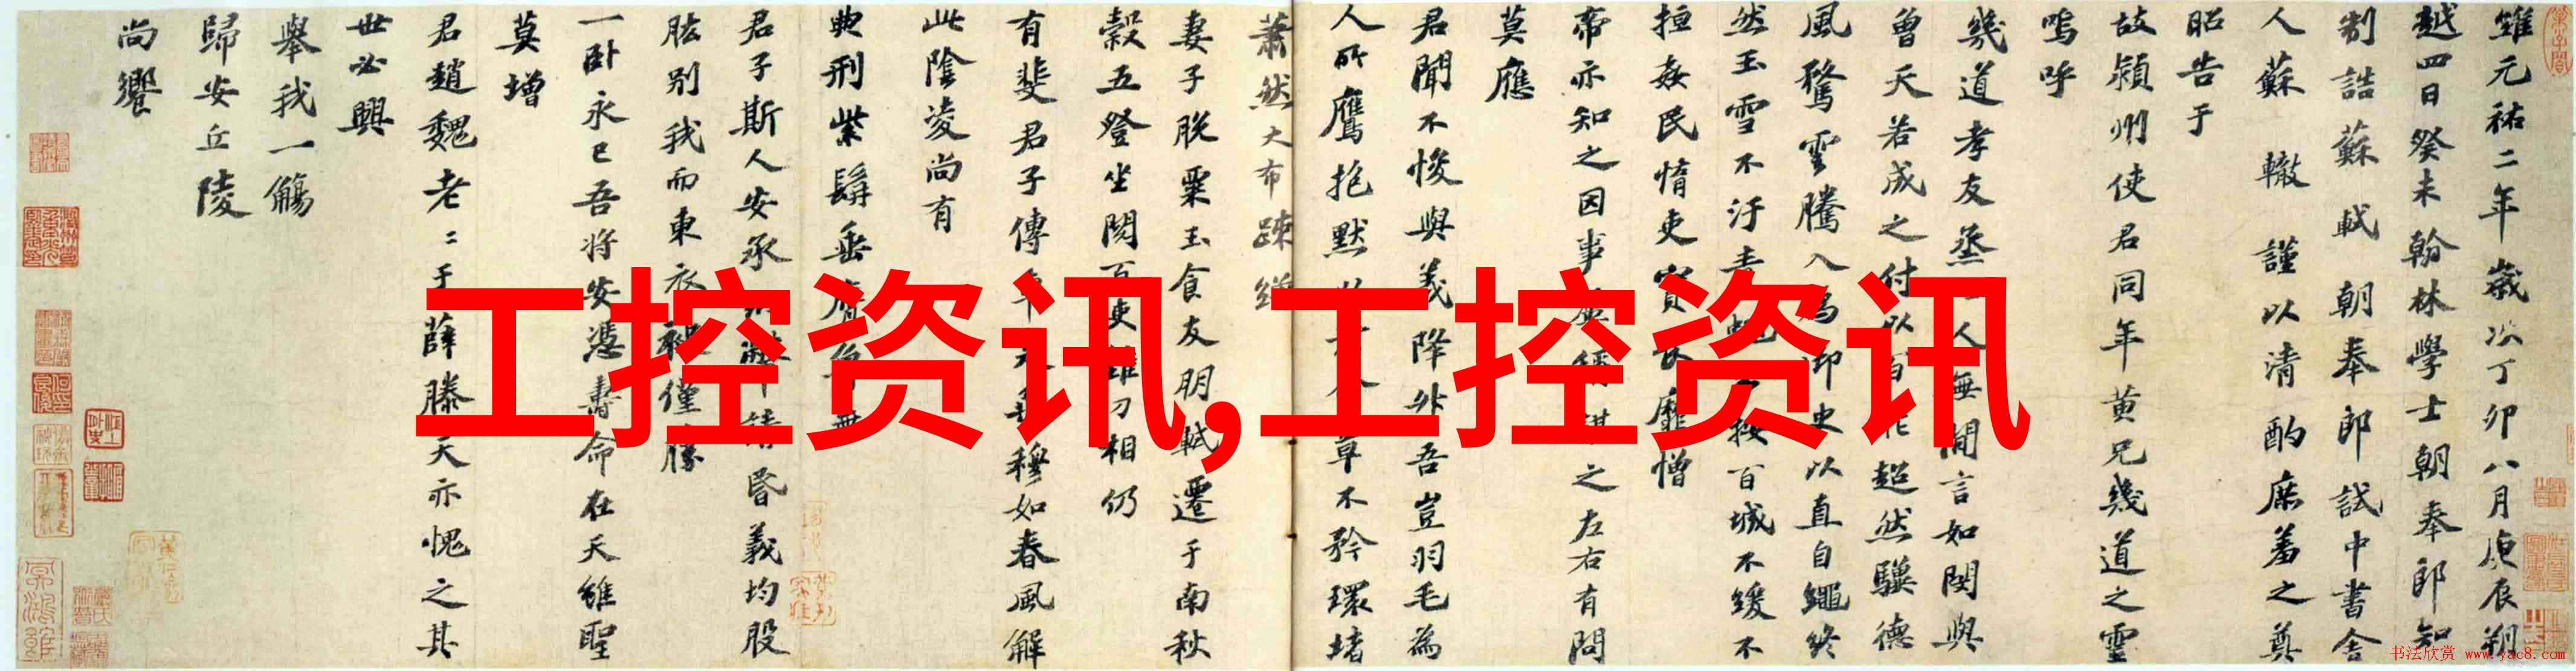 維元祐二年歲次丁卯八月庚辰朔
越四日癸未翰林學士朝奉郎知
制誥蘇軾朝奉郎試中書舍
人蘇轍謹以清酌庶羞之奠
昭告于
故潁州使君同年黄兄幾道之靈
嗚呼
幾道孝友烝人無閒言如閔與
曾天若成之付以百能超然驥德
風騖雲騰入為御史以直自繩終
然玉雪不汙青蠅按百城不緩不
擅姦民惰吏實長靡憎
帝亦知之因事屢稱謀之左右有問
莫應
君聞不悛與義降升吾豈羽毛為
人所鷹抱默以老不矜環堵
蕭然大布疎繒
妻子脱粟玉食友朋軾遷于南秋
穀五登坐閱百吏錐刀相仍
有斐君子傳車是乘穆如春風解
此陰凌尚有
典刑紫髯垂膺
君子斯人安承義均股
肱别我而東衣袂僅勝
一卧永已吾将安憑壽命在天雖聖
莫增
君趙魏老二于薛滕天亦愧之其
世必興
舉我一觴
歸安丘陵
尚饗
工控资讯,工控资讯
书法欣赏 www.yac8.com